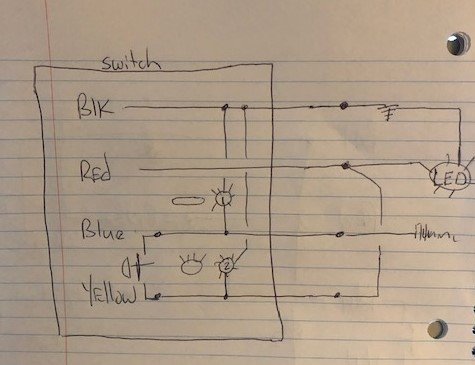 switch
Blk
Red
LED
1
Blue
2
Yellow